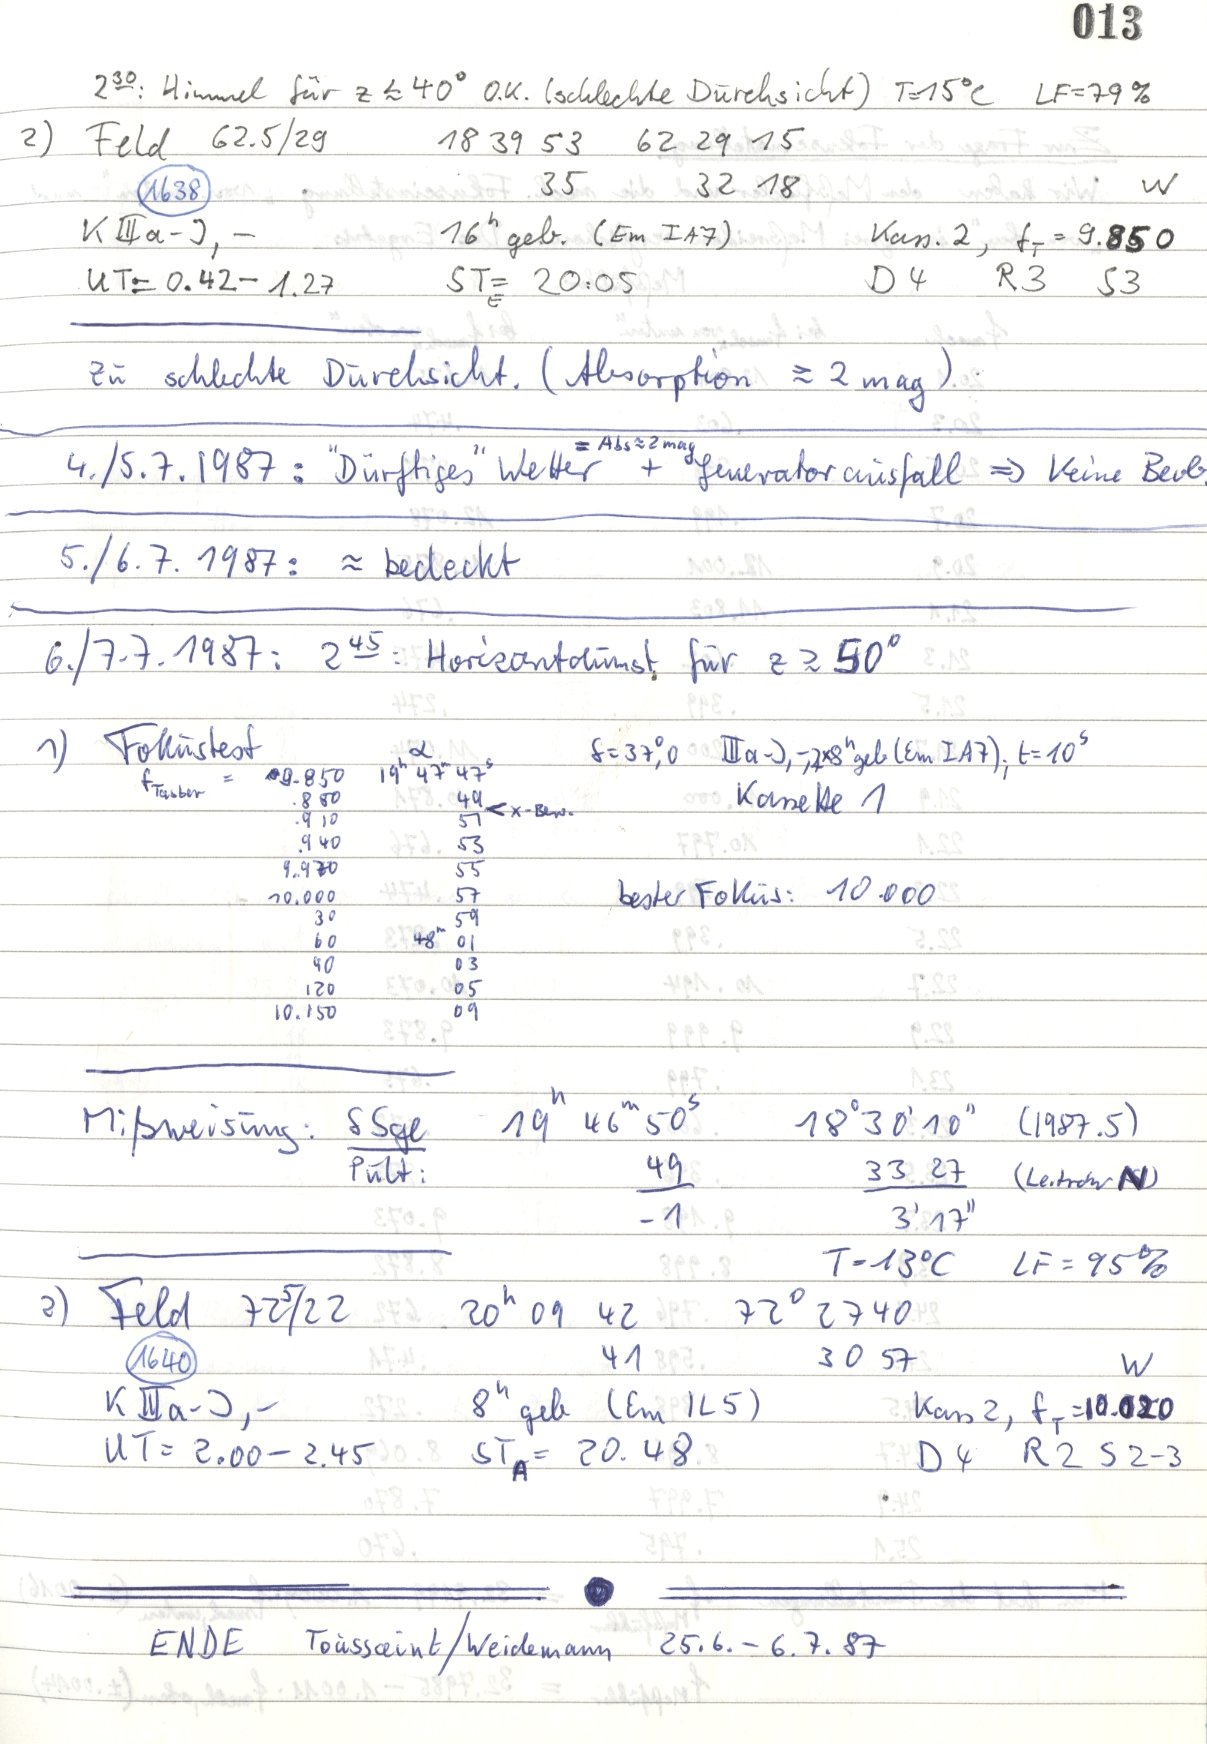 013
2³⁰: Himmel für z ≲ 40° O.K. (schlechte Durchsicht) T=15°C LF=79%
2) Feld 62.5/29 18 39 53 62 29 15
1638 35 32 18 W
K IIIa-J, - 16ʰ geb. (Em IA7) Kass. 2, f_T = 9.850
UT = 0.42 - 1.27 ST_E = 20:05 D4 R3 S3
Zu schlechte Durchsicht. (Absorption ≈ 2 mag)
= Abs ≈ 2 mag
4./5.7.1987: "Dürftiges" Wetter + Generatorausfall ⇒ Keine Beob.
5./6.7.1987: ≈ bedeckt
6./7.7.1987: 2⁴⁵: Horizontdunst für z ≳ 50°
1) Fokustest α δ=37°,0 IIIa-J,-, 8ʰ geb (Em IA7), t=10ˢ
f_Taster = 9.850 19ʰ 47ᵐ 47ˢ
.880 49 Kassette 1
.910 51 < x-Bew.
.940 53
9.970 55
10.000 57 bester Fokus: 10.000
30 59
60 48ᵐ 01
90 03
120 05
10.150 09
Mißweisung: δ Sge 19ʰ 46ᵐ 50ˢ 18° 30' 10" (1987.5)
Pult: 49 33 27 (Leitrohr N)
-1 3' 17"
T=13°C LF=95%
2) Feld 72⁵/22 20ʰ 09 42 72° 27 40
1640 41 30 57 W
K IIIa-J, - 8ʰ geb (Em IL5) Kass 2, f_T = 10.020
UT = 2.00 - 2.45 ST_A = 20.48 D4 R2 S2-3
ENDE Toussaint/Weidemann 25.6. - 6.7.87